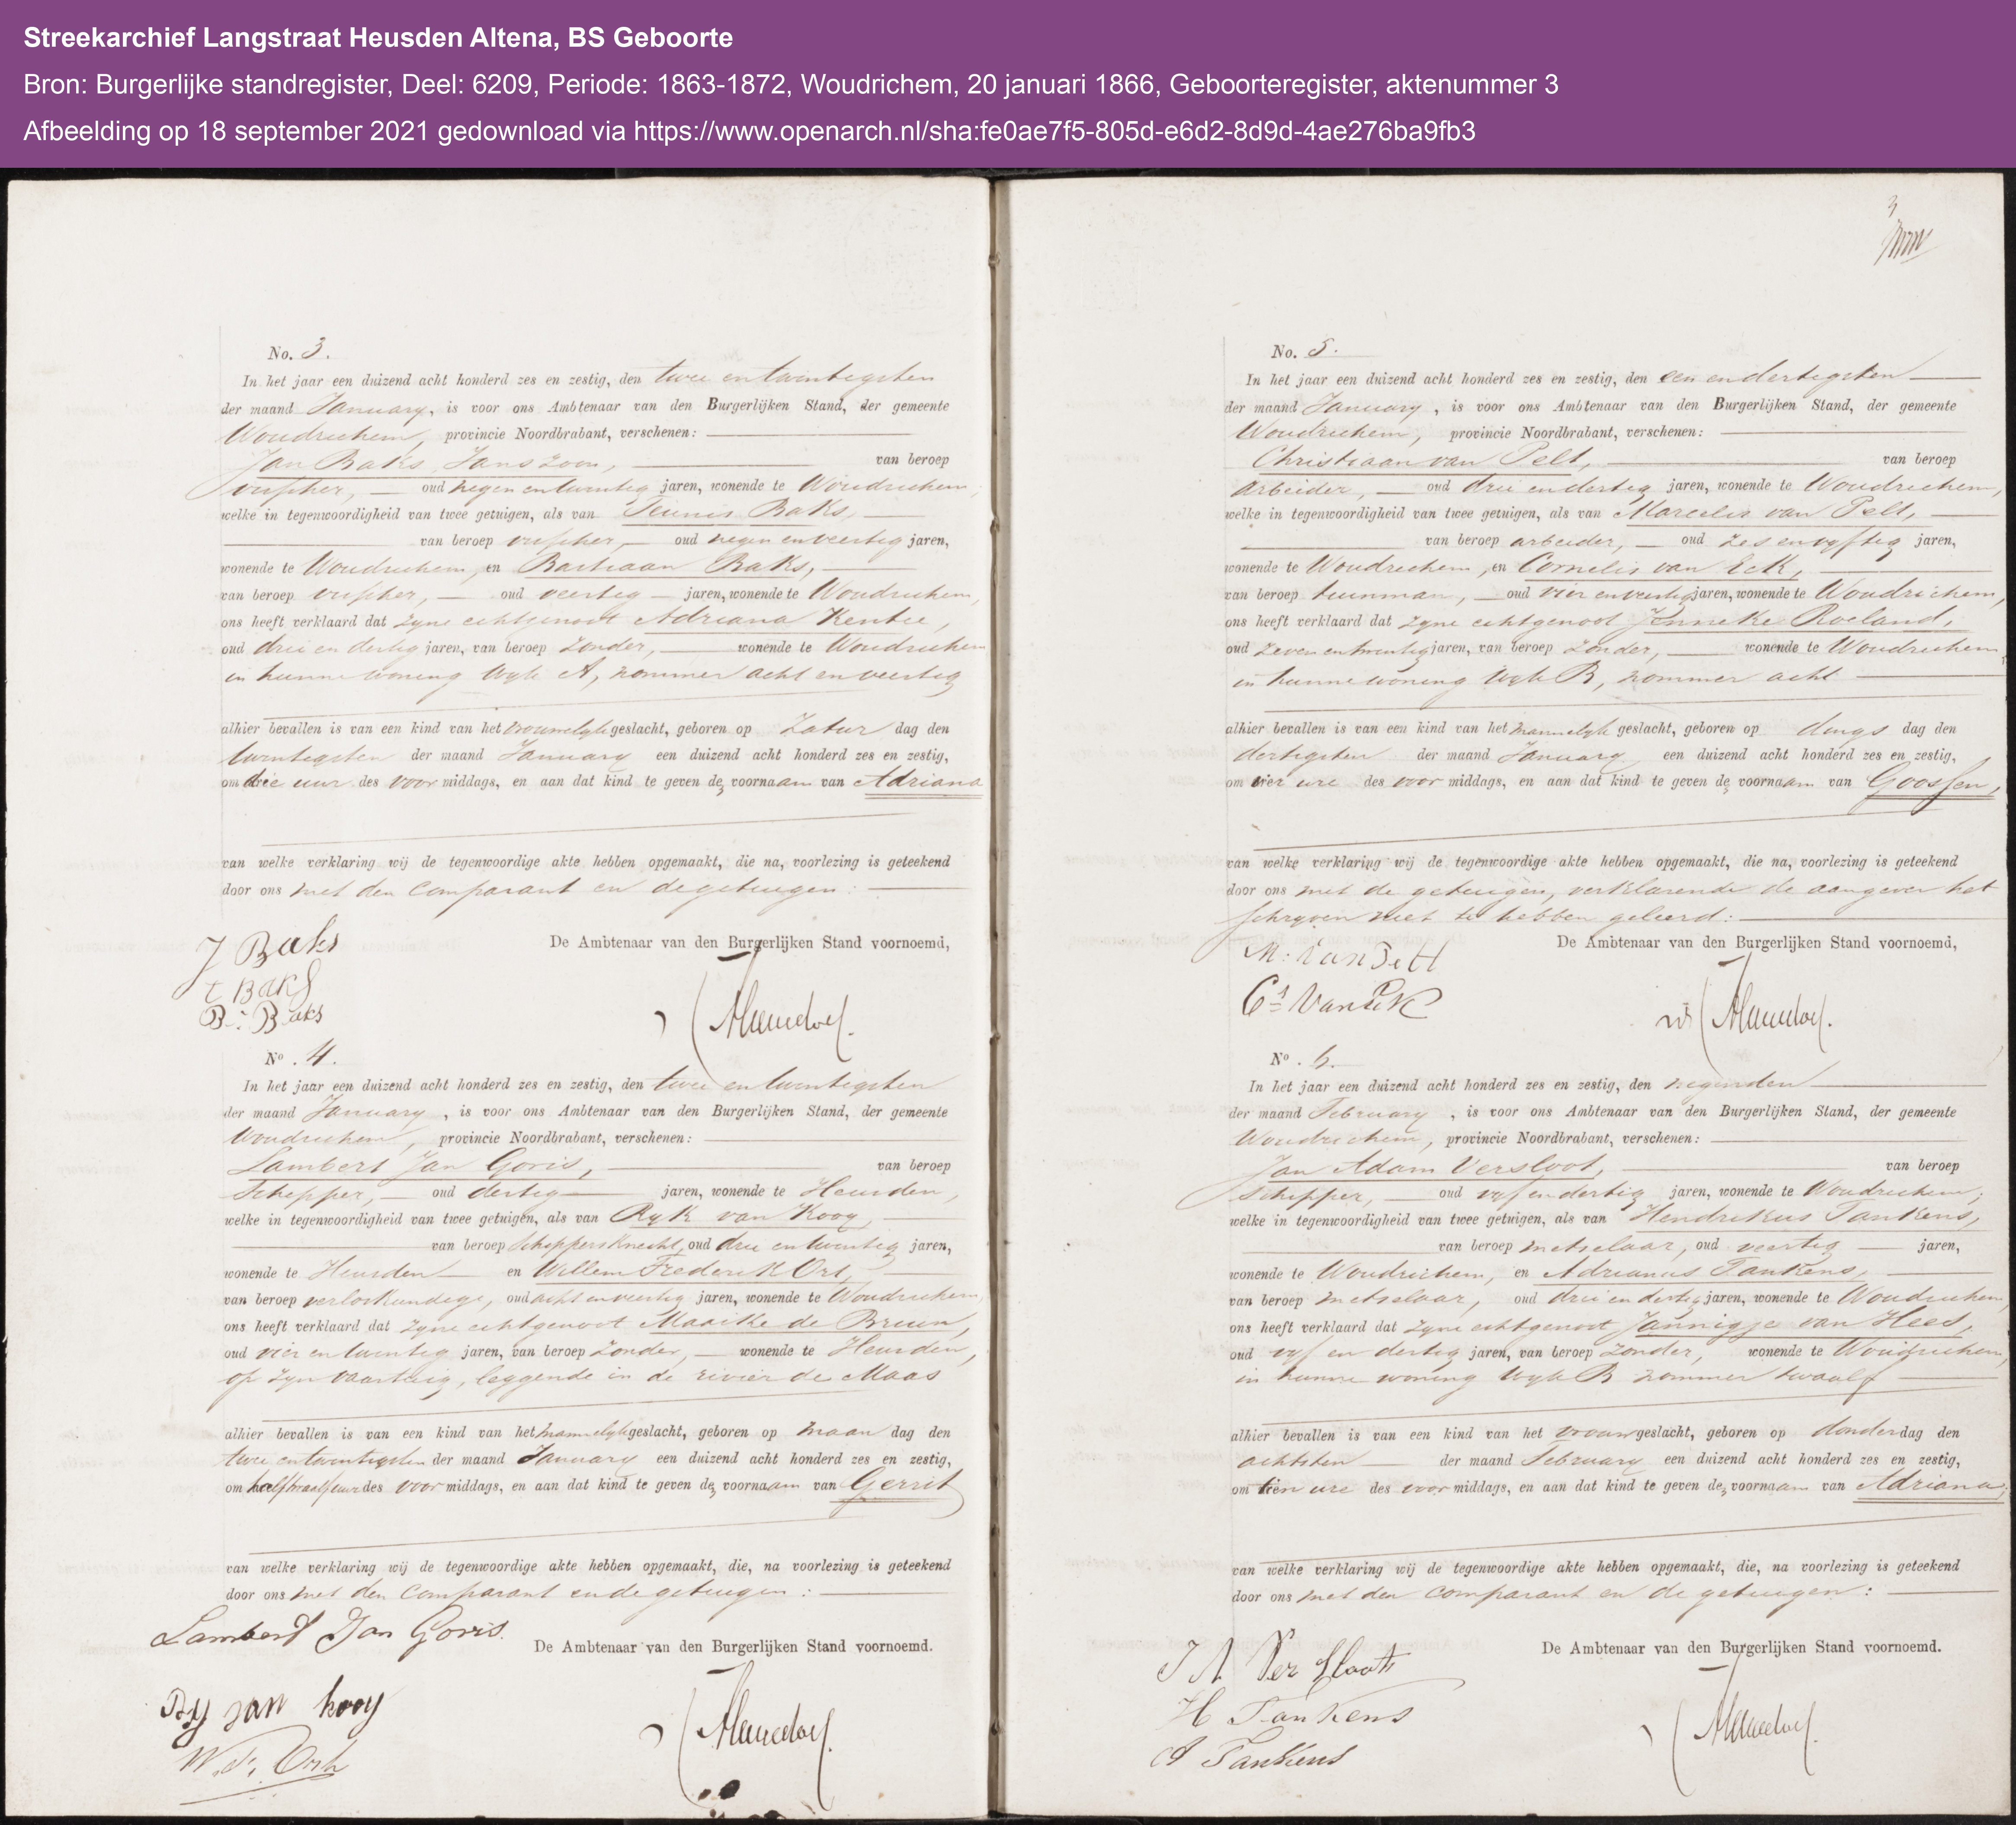 Streekarchief Langstraat Heusden Altena, BS Geboorte
Bron: Burgerlijke standregister, Deel: 6209, Periode: 1863-1872, Woudrichem, 20 januari 1866, Geboorteregister, aktenummer 3
Afbeelding op 18 september 2021 gedownload via https://www.openarch.nl/sha:fe0ae7f5-805d-e6d2-8d9d-4ae276ba9fb3
No. 3.
In het jaar een duizend acht honderd zes en zestig, den twee en twintigsten
der maand January, is voor ons Ambtenaar van den Burgerlijken Stand, der gemeente
Woudrichem, provincie Noordbrabant, verschenen:
Jan Baks Janszoon, van beroep
visscher, oud negen en twintig jaren, wonende te Woudrichem,
welke in tegenwoordigheid van twee getuigen, als van Teunis Baks,
van beroep visscher, oud negen en veertig jaren,
wonende te Woudrichem, en Bastiaan Baks,
van beroep visscher, oud veertig jaren, wonende te Woudrichem,
ons heeft verklaard dat zyne echtgenoot Adriana Kentie,
oud drie en dertig jaren, van beroep zonder, wonende te Woudrichem
in hunne woning Wyk A, nommer acht en veertig
alhier bevallen is van een kind van het vrouwelyk geslacht, geboren op Zatur dag den
twintigsten der maand January een duizend acht honderd zes en zestig,
om drie uur des voor middags, en aan dat kind te geven de voornaam van Adriana
van welke verklaring wij de tegenwoordige akte hebben opgemaakt, die na, voorlezing is geteekend
door ons met den comparant en de getuigen:
J Baks
De Ambtenaar van den Burgerlijken Stand voornoemd,
t Baks
B: Baks
No. 4.
In het jaar een duizend acht honderd zes en zestig, den twee en twintigsten
der maand January, is voor ons Ambtenaar van den Burgerlijken Stand, der gemeente
Woudrichem, provincie Noordbrabant, verschenen:
Lambert Jan Goris, van beroep
Schipper, oud dertig jaren, wonende te Heusden,
welke in tegenwoordigheid van twee getuigen, als van Ryk van Kooy,
van beroep Schippersknecht, oud drie en twintig jaren,
wonende te Heusden en Willem Frederik Ort,
van beroep verloskundige, oud acht en veertig jaren, wonende te Woudrichem,
ons heeft verklaard dat zyne echtgenoot Maaike de Bruin,
oud vier en twintig jaren, van beroep zonder, wonende te Heusden,
op zyn vaartuig, leggende in de rivier de Maas
alhier bevallen is van een kind van het mannelyk geslacht, geboren op maan dag den
twee en twintigsten der maand January een duizend acht honderd zes en zestig,
om half twaalf uur des voor middags, en aan dat kind te geven de voornaam van Gerrit
van welke verklaring wij de tegenwoordige akte hebben opgemaakt, die, na voorlezing is geteekend
door ons met den comparant en de getuigen:
Lambert Jan Goris.
De Ambtenaar van den Burgerlijken Stand voornoemd.
van kooy
W. F. Ort
3
No. 5.
In het jaar een duizend acht honderd zes en zestig, den een en dertigsten
der maand January, is voor ons Ambtenaar van den Burgerlijken Stand, der gemeente
Woudrichem, provincie Noordbrabant, verschenen:
Christiaan van Pelt, van beroep
arbeider, oud drie en dertig jaren, wonende te Woudrichem,
welke in tegenwoordigheid van twee getuigen, als van Marcelis van Pelt,
van beroep arbeider, oud zes en vyftig jaren,
wonende te Woudrichem, en Cornelis van Eck,
van beroep tuinman, oud vier en veertig jaren, wonende te Woudrichem,
ons heeft verklaard dat zyne echtgenoot Jenneke Roeland,
oud zeven en twintig jaren, van beroep zonder, wonende te Woudrichem,
in hunne woning Wyk B, nommer acht
alhier bevallen is van een kind van het mannelyk geslacht, geboren op dings dag den
dertigsten der maand January een duizend acht honderd zes en zestig,
om vier ure des voor middags, en aan dat kind te geven de voornaam van Goossen,
van welke verklaring wij de tegenwoordige akte hebben opgemaakt, die na, voorlezing is geteekend
door ons met de getuigen, verklarende de aangever het
schryven niet te hebben geleerd:
M: van Pelt
De Ambtenaar van den Burgerlijken Stand voornoemd,
Cs Van Eck
No. 6.
In het jaar een duizend acht honderd zes en zestig, den negenden
der maand February, is voor ons Ambtenaar van den Burgerlijken Stand, der gemeente
Woudrichem, provincie Noordbrabant, verschenen:
Jan Adam Versloot, van beroep
Schipper, oud vyf en dertig jaren, wonende te Woudrichem,
welke in tegenwoordigheid van twee getuigen, als van Hendrikus Tankens,
van beroep metselaar, oud veertig jaren,
wonende te Woudrichem, en Adrianus Tankens,
van beroep metselaar, oud drie en dertig jaren, wonende te Woudrichem
ons heeft verklaard dat zyne echtgenoot Jannigje van Hees,
oud vyf en dertig jaren, van beroep zonder, wonende te Woudrichem,
in hunne woning Wyk B nommer twaalf
alhier bevallen is van een kind van het vrouw geslacht, geboren op donderdag den
achtsten der maand February een duizend acht honderd zes en zestig,
om tien ure des voor middags, en aan dat kind te geven de voornaam van Adriana,
van welke verklaring wij de tegenwoordige akte hebben opgemaakt, die, na voorlezing is geteekend
door ons met den comparant en de getuigen:
De Ambtenaar van den Burgerlijken Stand voornoemd.
J A Ver Sloot
H Tankens
A Tankens